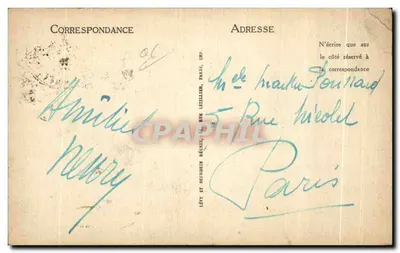 CORRESPONDANCE
ADRESSE
N'écrire que sur
le côté réservé à
la correspondance
Amitiés
Henry
LÉVY ET NEURDEIN RÉUNIS, 44 RUE LETELLIER, PARIS, IMP.
Mlle
5 Rue Nicolet
Paris
CPAPHIL.COM